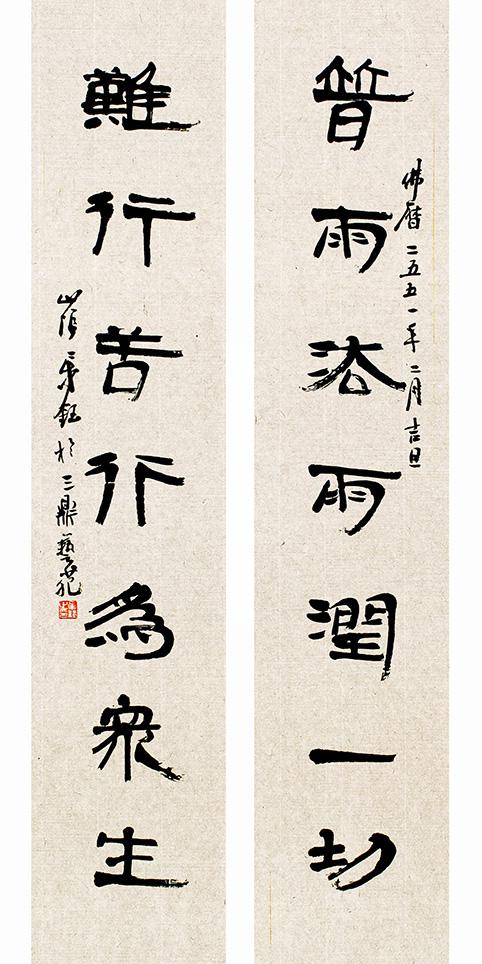 佛曆二五五一年二月吉旦
普雨法雨潤一切
難行苦行為眾生
於三鼎藝苑